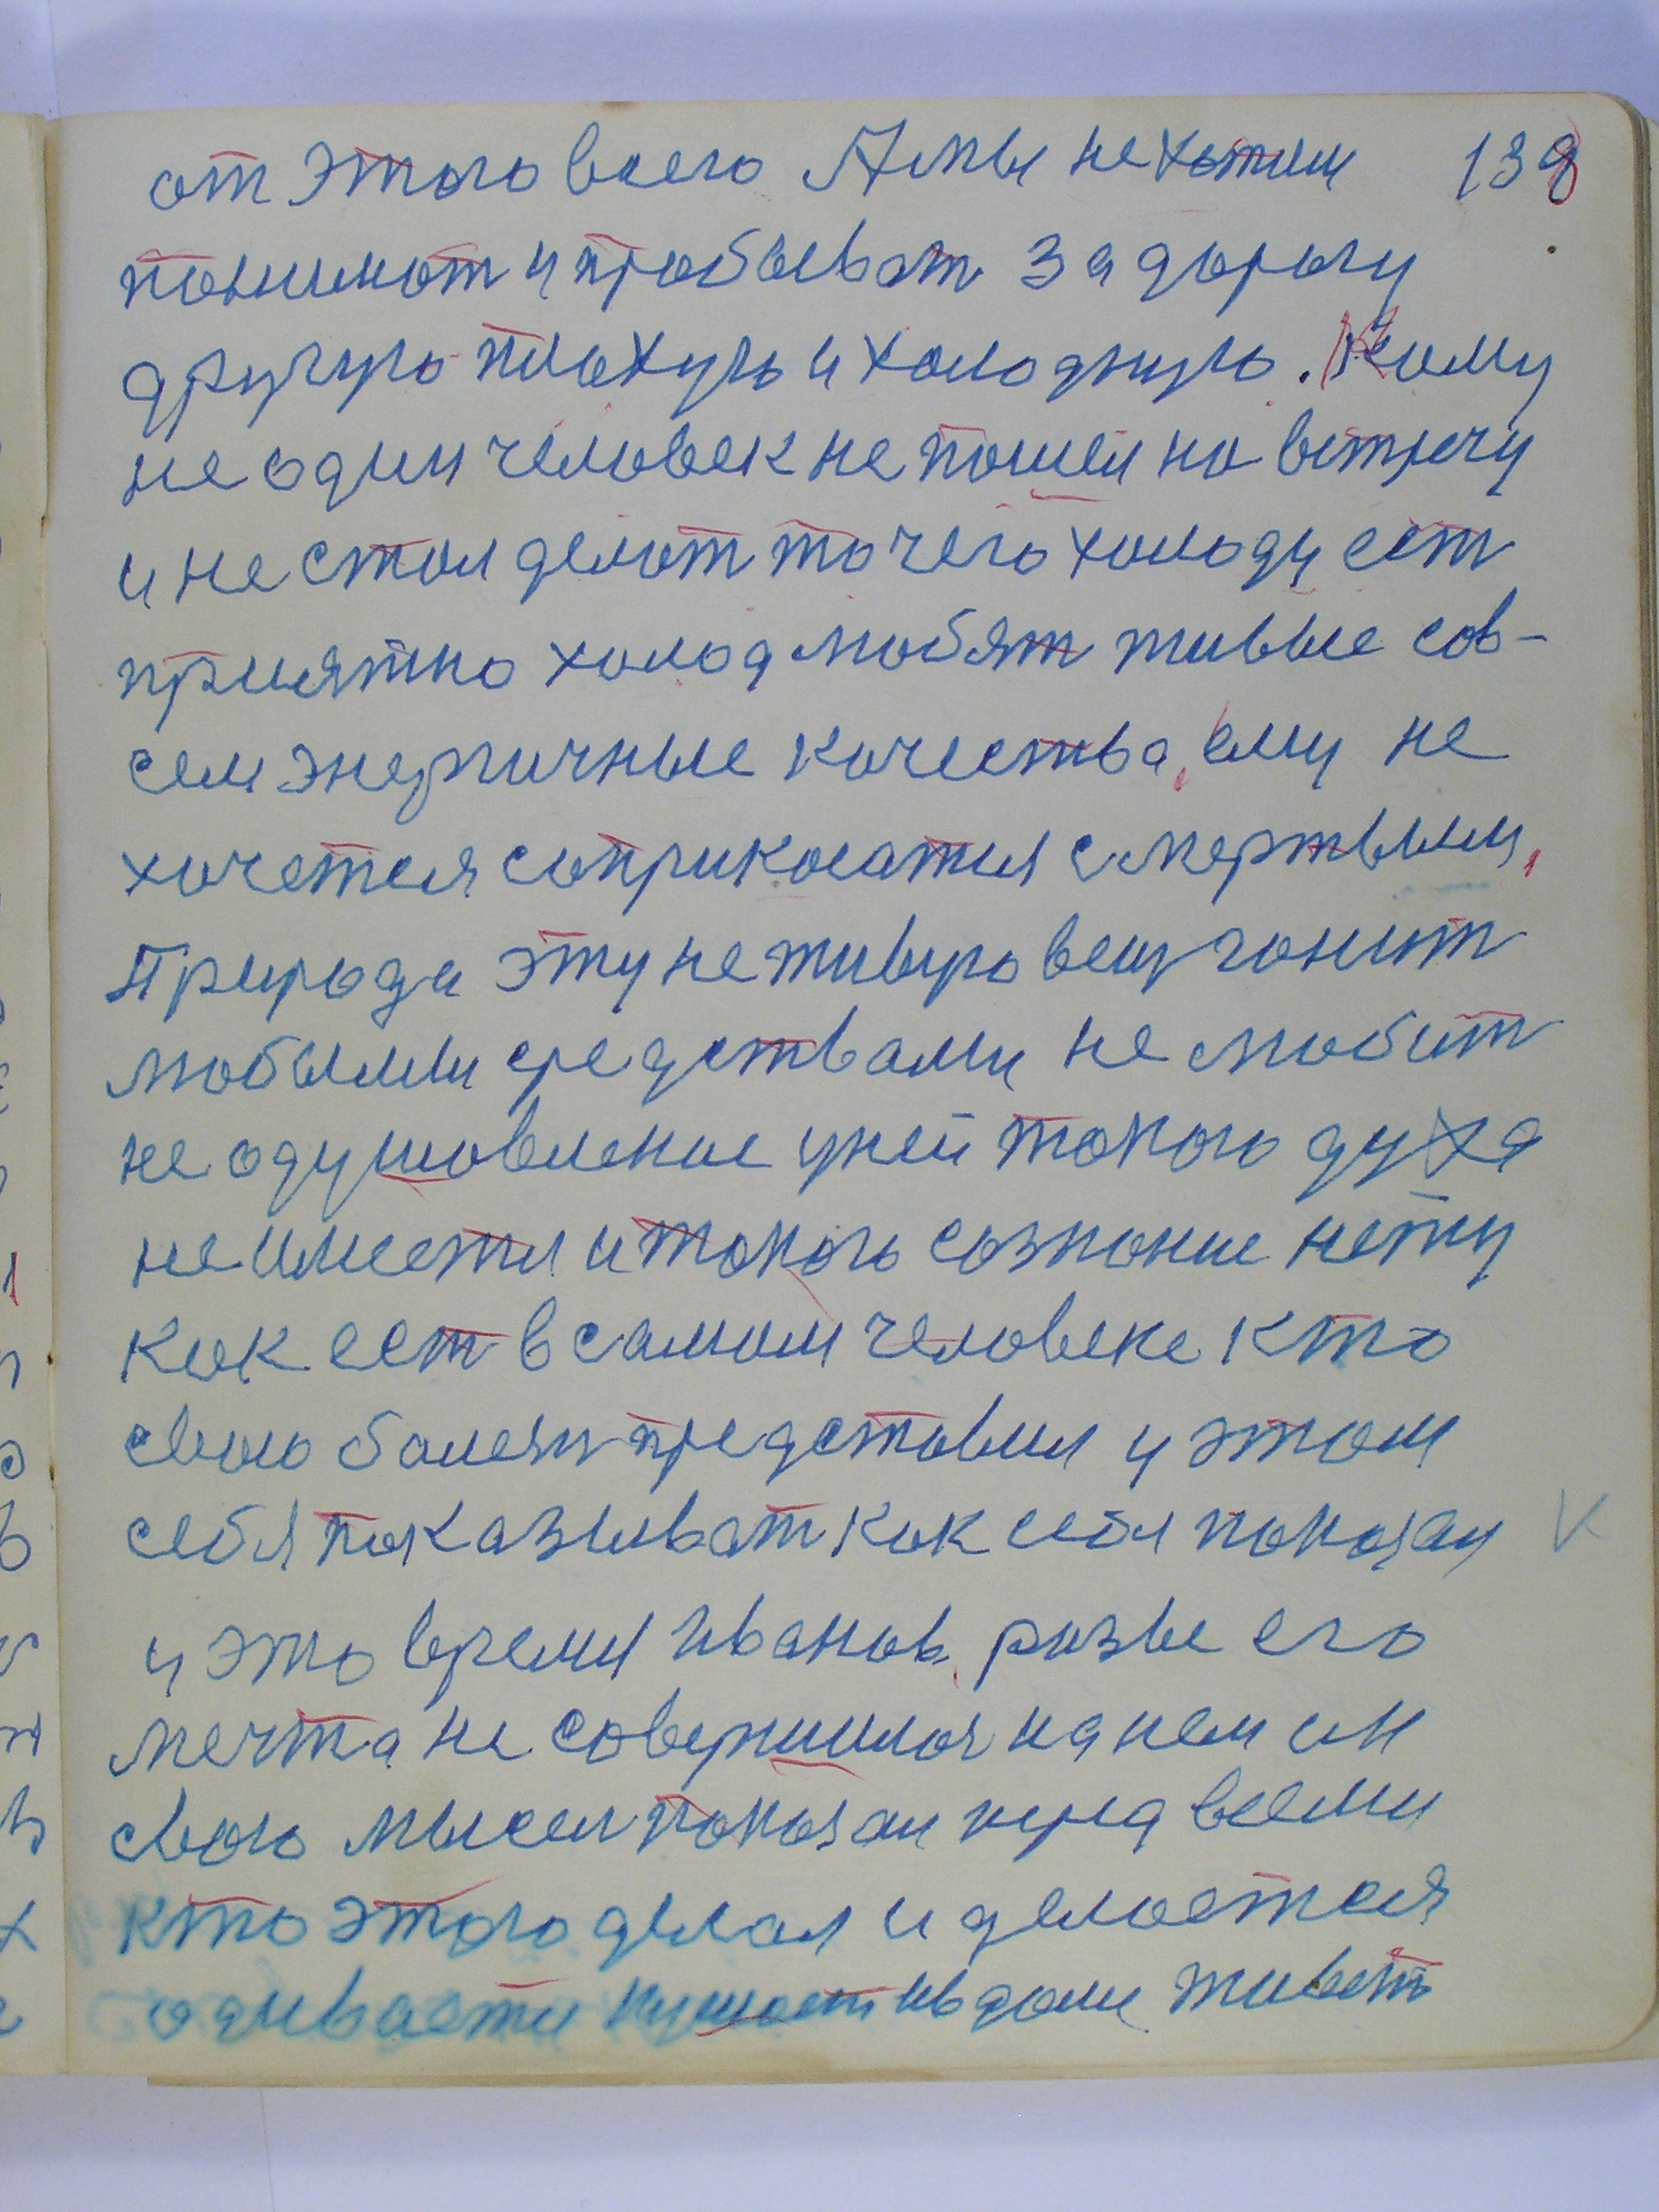 от этого всего А мы не хотим 138
понимат и пробыват за дорогу
другую плохую и холодную. Кому
не один человек не пошел на встречу
и не стал делат то чего холоду ест
приятно холод любят живые сов-
сем энергичные качества, ему не
хочется соприкосатся с мертвым,
Природа эту не живую вещ гонит
любыми средствами не любит
не одушовление у ней такого духа
не имеется и такого сознание нету
как ест в самом человеке кто
свою болезн представил и этом
себя показыват как себя показал V
и это время Иванов, разве его
мечта не совершилас на нем он
свою мысел показал перед всеми
кто этого делал и делается
одивается кушает и в доме живет